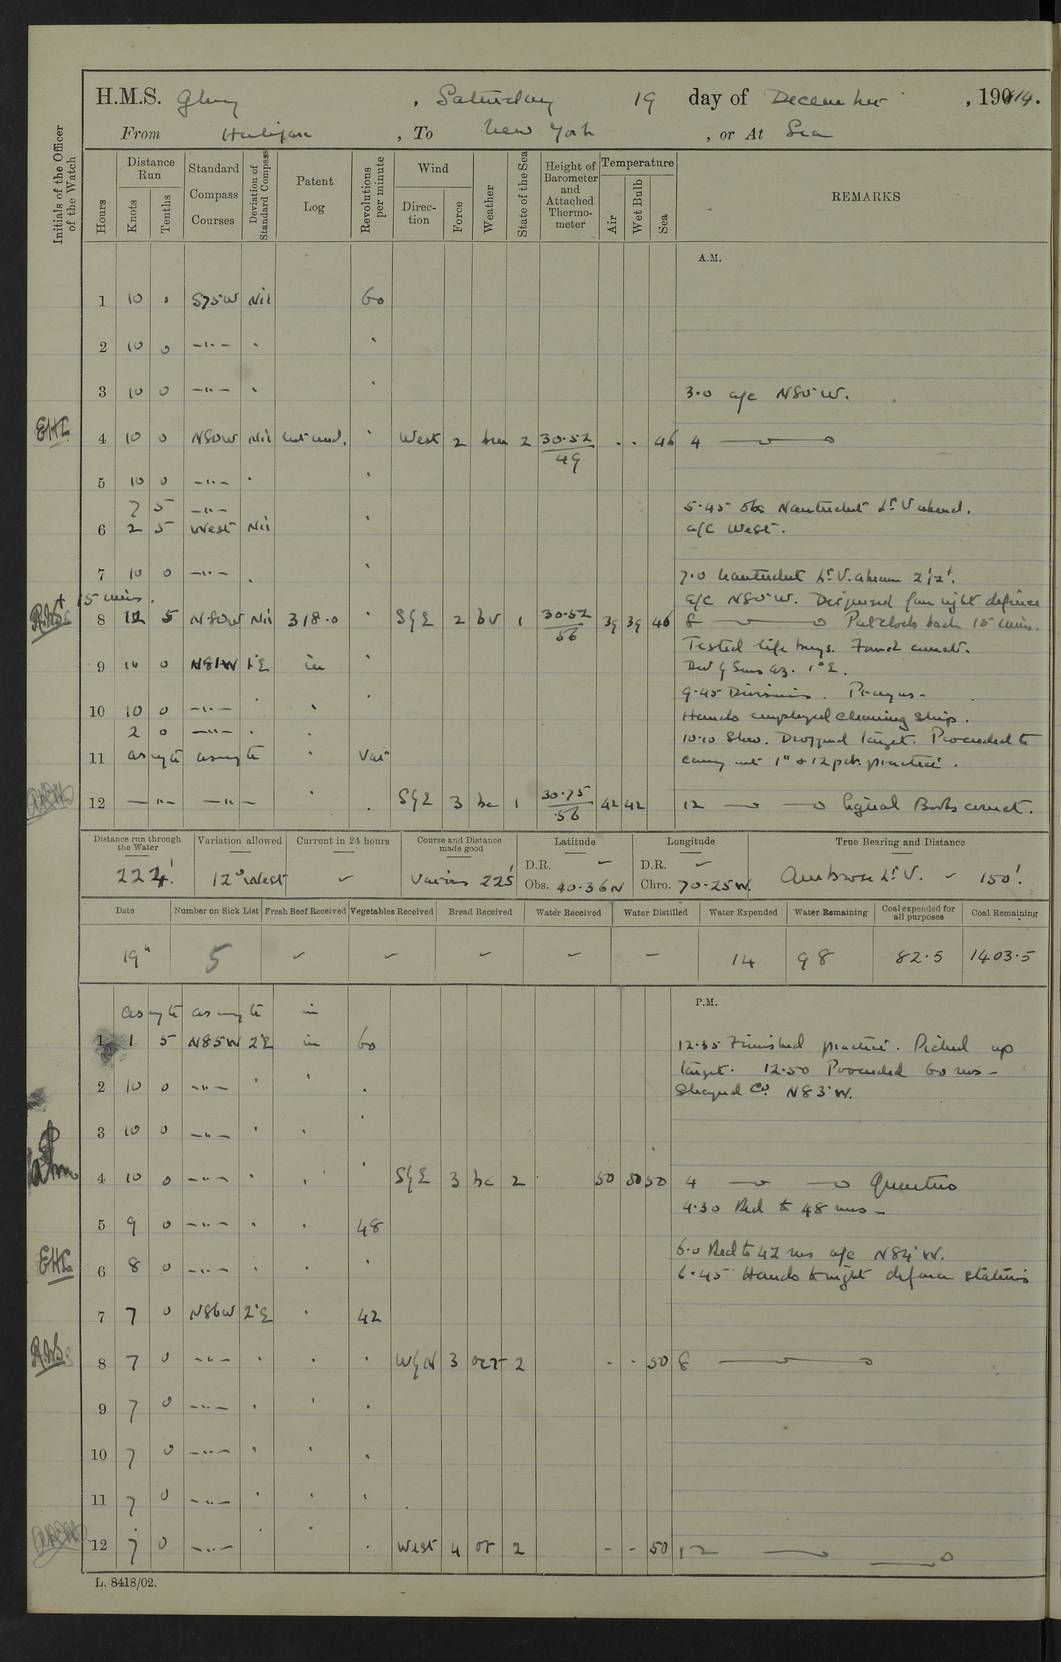 H.M.S. Glory, Saturday 19 day of December, 1914.
From Halifax, To New York, or At Sea
Initials of the Officer of the Watch
Hours Distance Run Knots Tenths Standard Compass Courses Deviation of Standard Compass Patent Log Revolutions per minute Wind Direction Force Weather State of the Sea Height of Barometer and Attached Thermometer Temperature Air Wet Bulb Sea REMARKS
A.M.
1 10 0 S75W Nil 60
2 10 0 —"— "
3 10 0 —"— " 3.0 a/c N80°W.
EHL 4 10 0 N80W Nil West 2 2 30.52 49 - - 46 4
5 10 0 —"— "
7 5 —"— 5.45 Obs Nantucket Lt V ahead.
6 2 5 West Nil a/c West.
7 10 0 —"— 7.0 Nantucket Lt V. abeam 2½'.
+ 15 mins. a/c N80°W. Dispersed from night defence
8 12 5 N80W Nil 318.0 " SyE 2 bv 1 30.52 56 39 39 46 8 Put clocks back 15 mins.
Tested life buoys. Found correct.
9 10 0 N81W 1°E in " Dev by Suns Az. 1°E.
9.45 Divisions. Prayers -
10 10 0 —"— " Hands employed cleaning ship.
2 0 —"— " 10.10 Slow. Dropped target. Proceeded to
11 as reqte as reqte " Var carry out 1" & 12 pdr. practice.
12 —"— —"— " SyE 3 bc 1 30.75 56 42 42 12 Signal Books correct.
Distance run through the Water Variation allowed Current in 24 hours Course and Distance made good Latitude Longitude True Bearing and Distance
D.R. - D.R. -
224' 12° West - Various 225' Obs. 40.36N Chro. 70.25W. Ambrose Lt V. - 150'.
Date Number on Sick List Fresh Beef Received Vegetables Received Bread Received Water Received Water Distilled Water Expended Water Remaining Coal expended for all purposes Coal Remaining
19th 5 - - - - - 14 98 82.5 1403.5
P.M.
as reqte as reqte in
1 1 5 N85W 2°E in 60 12.35 Finished practice. Picked up
target. 12.50 Proceeded 60 revs -
2 10 0 —"— " Shaped Co. N83°W.
3 10 0 —"— "
4 10 0 —"— " SyE 3 bc 2 50 50 50 4 Quarters
4.30 Red to 48 revs -
5 9 0 —"— " 48
6.0 Red to 42 revs a/c N84°W.
EHL 6 8 0 —"— " 6.45 Hands to night defence stations
7 7 0 N86W 2°E " 42
8 7 0 —"— " WyN 3 ocr 2 - - 50 8
9 7 0 —"— "
10 7 0 —"— "
11 7 0 —"— "
12 7 0 —"— West 4 or 2 - - 50 12
L. 8418/02.